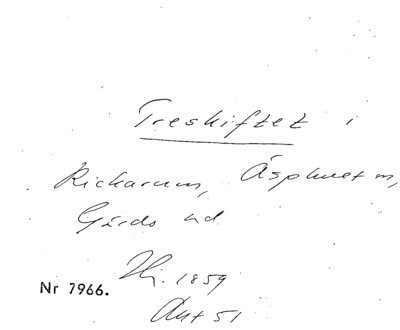 Treskiftet i
Rickarum, Äsphult m,
Gärds hd
Hj. 1859
Nr 7966.
Akt 51